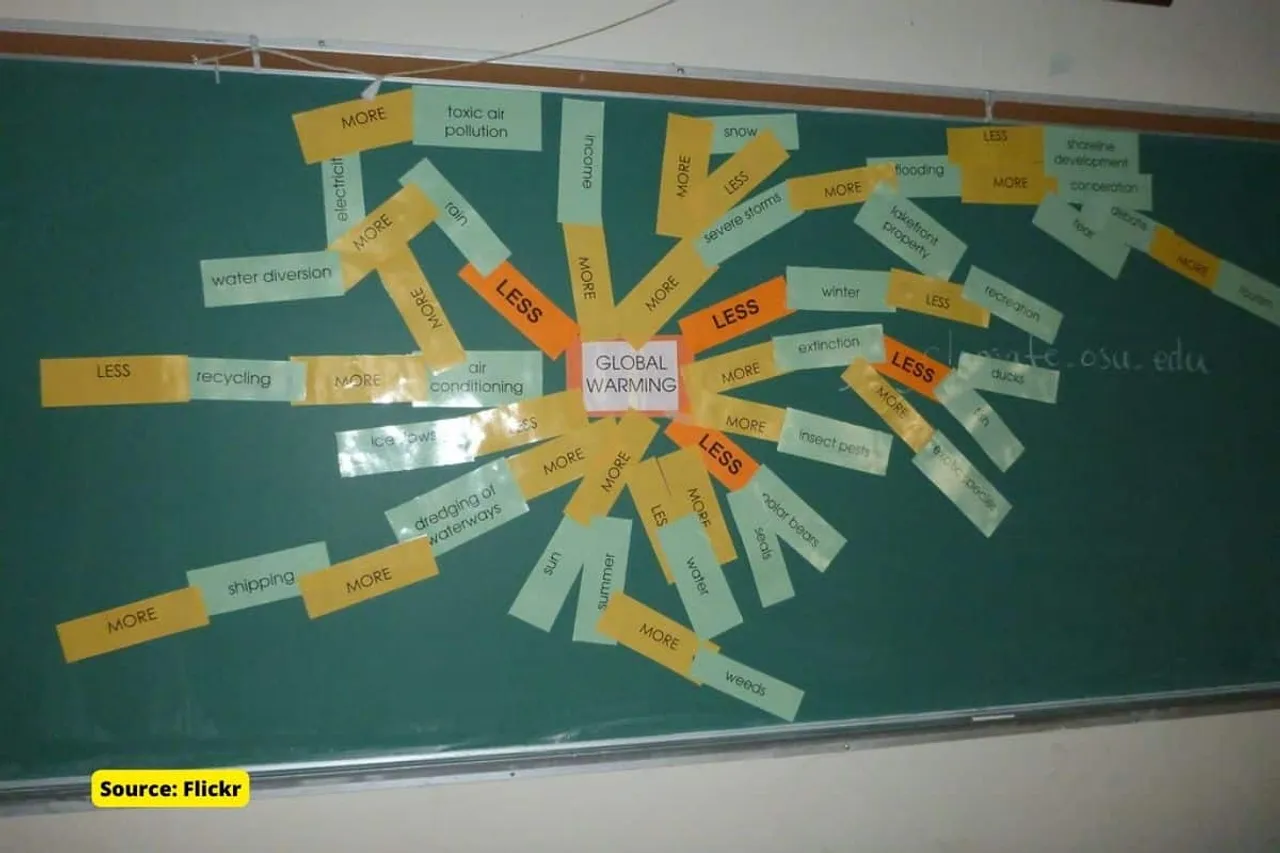 MORE
toxic air
pollution
income
MORE
snow
LESS
LESS
shoreline
development
MORE
cooperation
electricit
MORE
rain
severe storms
MORE
flooding
lakefront
property
fear
debris
MORE
tourism
water diversion
MORE
LESS
MORE
MORE
LESS
winter
LESS
recreation
GLOBAL
WARMING
MORE
extinction
LESS
climate.osu.edu
ducks
LESS
recycling
MORE
air
conditioning
MORE
fish
MORE
insect pests
exotic species
LESS
LESS
MORE
MORE
dredging of
waterways
LES
MORE
polar bears
seals
sun
summer
water
shipping
MORE
MORE
MORE
weeds
Source: Flickr